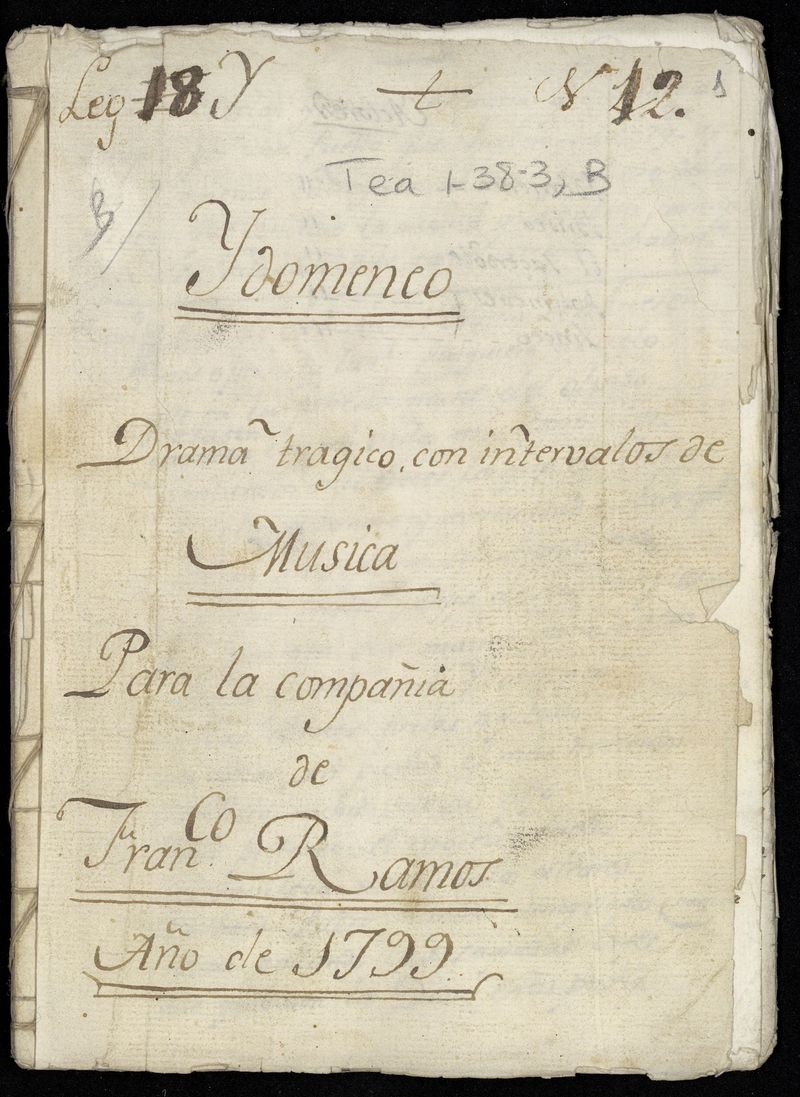 Leg 18 Y + N 12. 1
Tea 1-38-3, B
B/
Ydomeneo
Drama tragico, con intervalos de
Musica
Para la compañia
de
Fran.co Ramos
Año de 1799